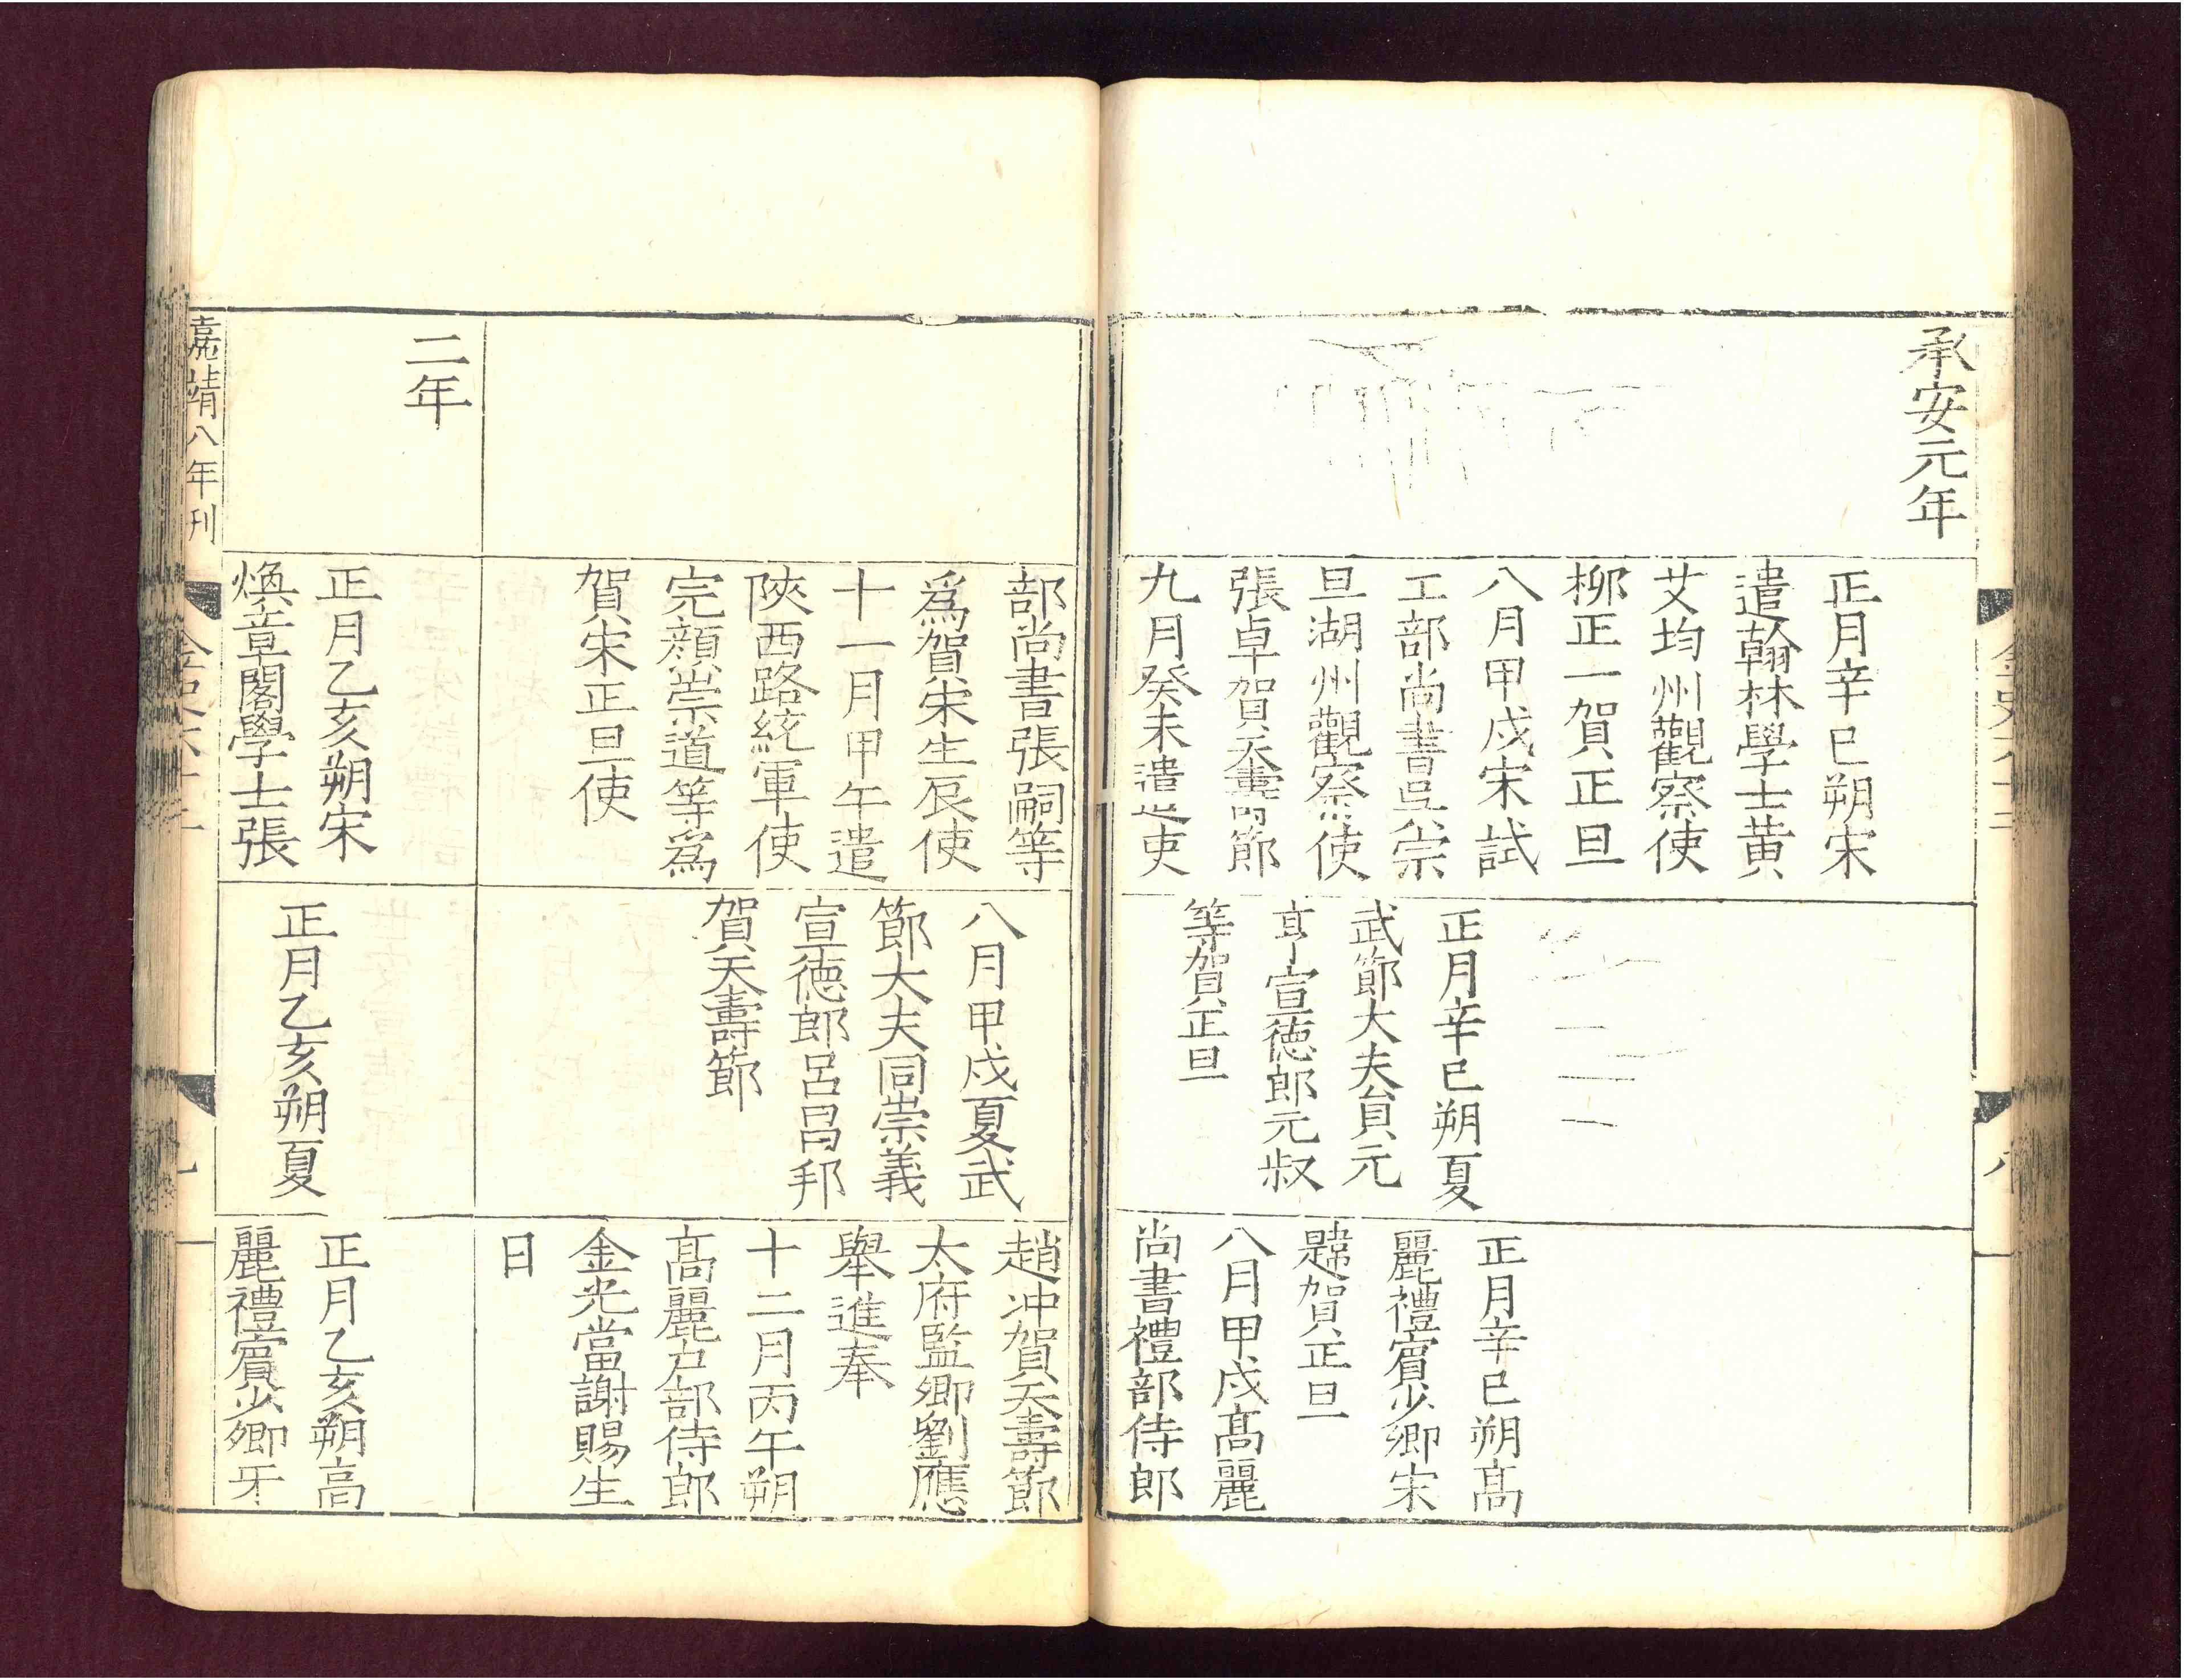 承安元年
正月辛巳朔宋
遣翰林學士黄
艾均州觀察使
柳正一賀正旦
八月甲戌宋試
工部尚書吳宗
旦湖州觀察使
張卓賀天壽節
九月癸未遣吏
正月辛巳朔夏
武節大夫貟元
亨宣德郎元叔
等賀正旦
正月辛巳朔髙
麗禮賓少卿宋
韙賀正旦
八月甲戌髙麗
尚書禮部侍郎
部尚書張嗣等
爲賀宋生辰使
十一月甲午遣
陝西路統軍使
完顔崇道等爲
賀宋正旦使
八月甲戌夏武
節大夫同崇義
宣德郎呂昌邦
賀天壽節
趙冲賀天壽節
太府監卿劉應
舉進奉
十二月丙午朔
髙麗户部侍郎
金光當謝賜生
日
二年
正月乙亥朔宋
煥章閣學士張
正月乙亥朔夏
正月乙亥朔高
麗禮賓少卿牙
嘉靖八年刊